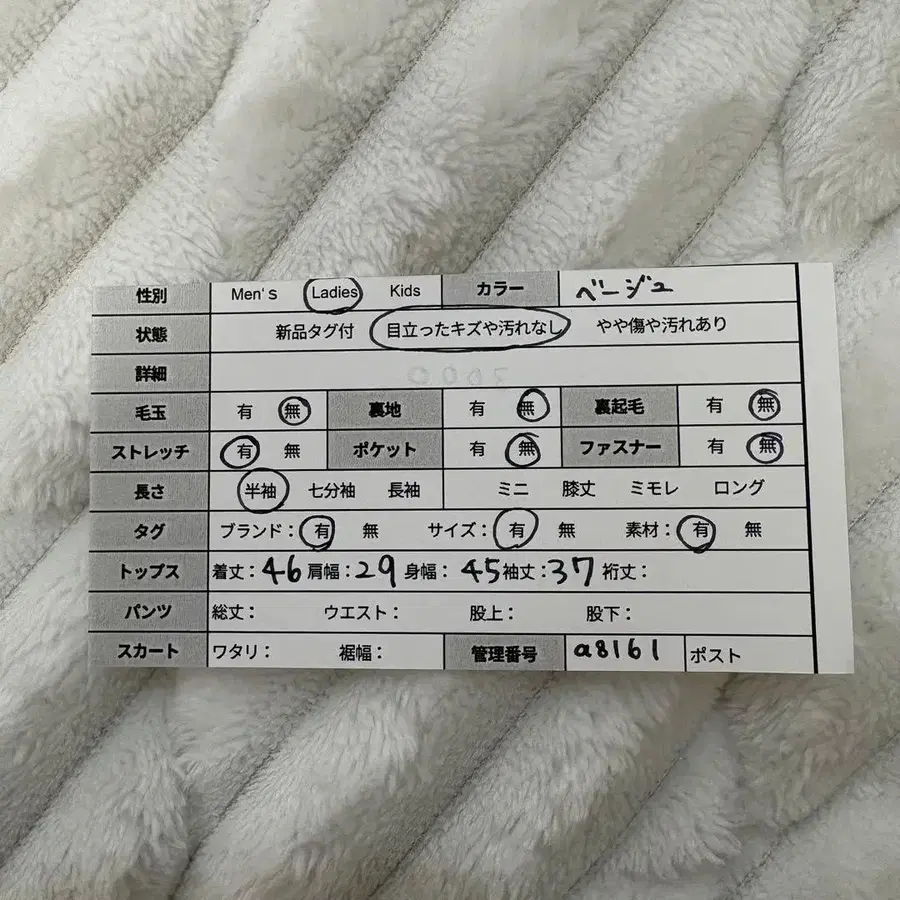 性別 Men's Ladies Kids カラー ベージュ
状態 新品タグ付 目立ったキズや汚れなし やや傷や汚れあり
詳細
毛玉 有 無 裏地 有 無 裏起毛 有 無
ストレッチ 有 無 ポケット 有 無 ファスナー 有 無
長さ 半袖 七分袖 長袖 ミニ 膝丈 ミモレ ロング
タグ ブランド： 有 無 サイズ： 有 無 素材： 有 無
トップス 着丈：46 肩幅：29 身幅：45 袖丈：37 裄丈：
パンツ 総丈： ウエスト： 股上： 股下：
スカート ワタリ： 裾幅： 管理番号 a8161 ポスト